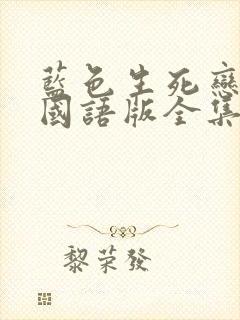 藍色生死戀
國語版全集
黎榮發